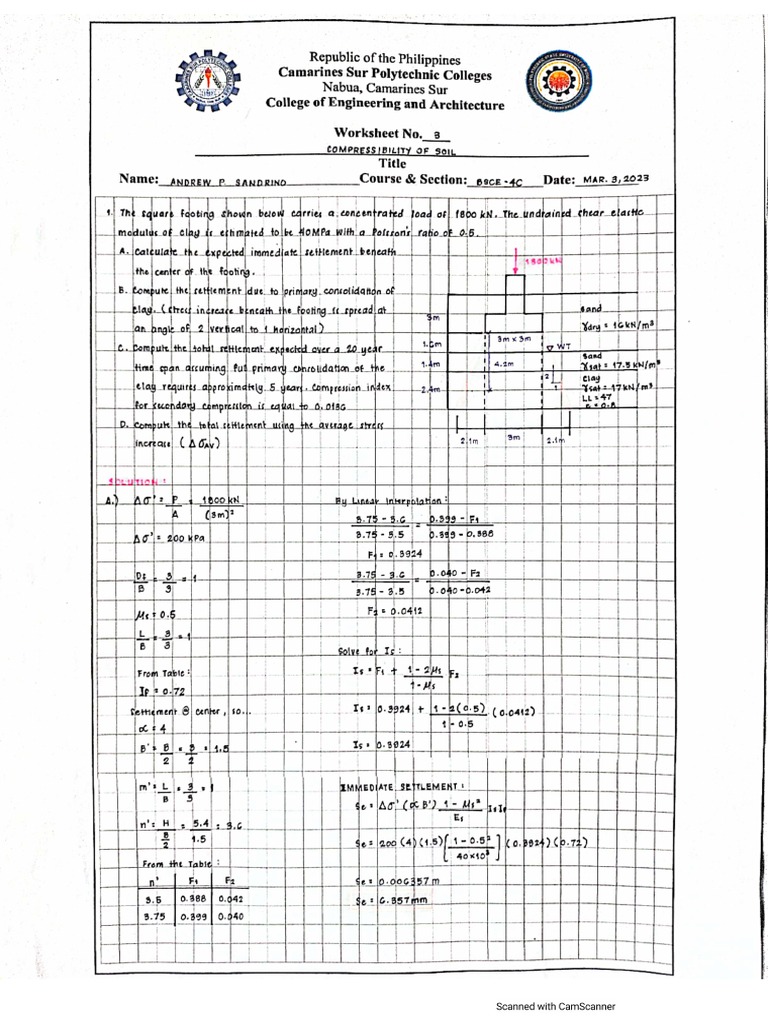 Republic of the Philippines
Camarines Sur Polytechnic Colleges
Nabua, Camarines Sur
College of Engineering and Architecture
Worksheet No. 3
COMPRESSIBILITY OF SOIL
Title
Name: ANDREW P. SANDRINO Course & Section: BSCE-4C Date: MAR. 3, 2023
1. The square footing shown below carries a concentrated load of 1800 kN. The undrained shear elastic
modulus of clay is estimated to be 40MPa with a Poisson's ratio of 0.5.
A. Calculate the expected immediate settlement beneath
the center of the footing.
B. Compute the settlement due to primary consolidation of
clay. (stress increase beneath the footing is spread at
an angle of 2 vertical to 1 horizontal)
C. Compute the total settlement expected over a 20 year
time span assuming full primary consolidation of the
clay requires approximately 5 years. Compression index
for secondary compression is equal to 0.0136
D. Compute the total settlement using the average stress
increase (Δσav)
1800kN
3m
1.6m
1.4m
2.4m
3m x 3m
4.2m
WT
2
1
Sand
γdry = 16kN/m³
Sand
γsat = 17.5 kN/m³
Clay
γsat = 17 kN/m³
LL = 47
e = 0.8
2.1m
3m
2.1m
SOLUTION:
A.) Δσ' = P/A = 1800 kN/(3m)²
Δσ' = 200 kPa
Df/B = 3/3 = 1
μs = 0.5
L/B = 3/3 = 1
From Table:
If = 0.72
Settlement @ center, so...
α = 4
B' = B/2 = 3/2 = 1.5
m' = L/B = 3/3 = 1
n' = H/(B/2) = 5.4/1.5 = 3.6
From the Table:
n' F1 F2
3.5 0.388 0.042
3.75 0.399 0.040
By Linear Interpolation:
(3.75 - 3.6)/(3.75 - 3.5) = (0.399 - F1)/(0.399 - 0.388)
F1 = 0.3924
(3.75 - 3.6)/(3.75 - 3.5) = (0.040 - F2)/(0.040 - 0.042)
F2 = 0.0412
Solve for Is:
Is = F1 + (1 - 2μs)/(1 - μs) F2
Is = 0.3924 + (1 - 2(0.5))/(1 - 0.5) (0.0412)
Is = 0.3924
IMMEDIATE SETTLEMENT:
Se = Δσ' (αB') (1 - μs²)/Es IsIf
Se = 200 (4)(1.5) [(1 - 0.5²)/(40x10³)] (0.3924)(0.72)
Se = 0.006357 m
Se = 6.357mm
Scanned with CamScanner